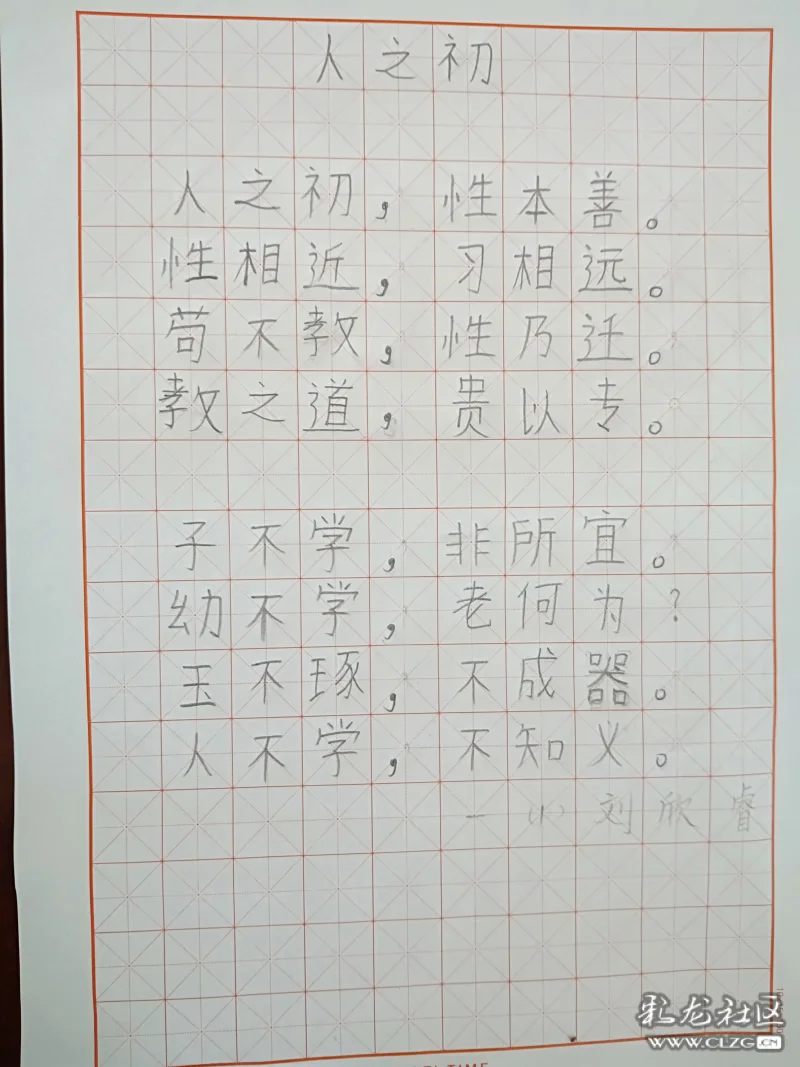 人之初
人之初，性本善。
性相近，习相远。
苟不教，性乃迁。
教之道，贵以专。
子不学，非所宜。
幼不学，老何为？
玉不琢，不成器。
人不学，不知义。
一（1）刘欣睿
彩龙社区
www.CLZG.CN